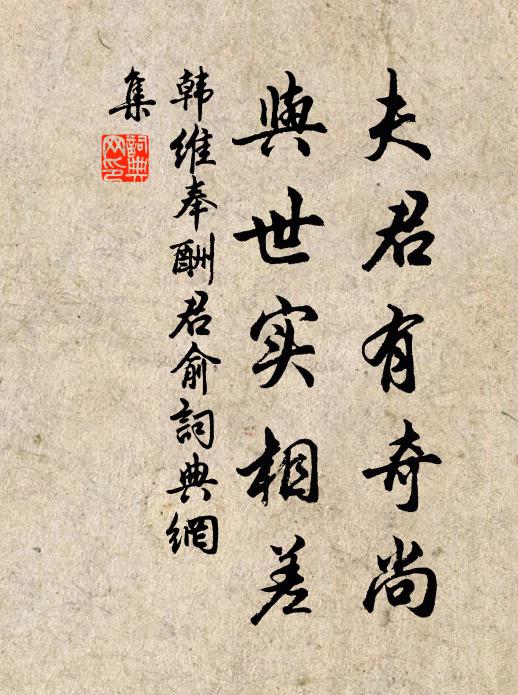 夫君有奇尚
與世实相差
韩维奉酬君俞詞典網
集
詞典
网印